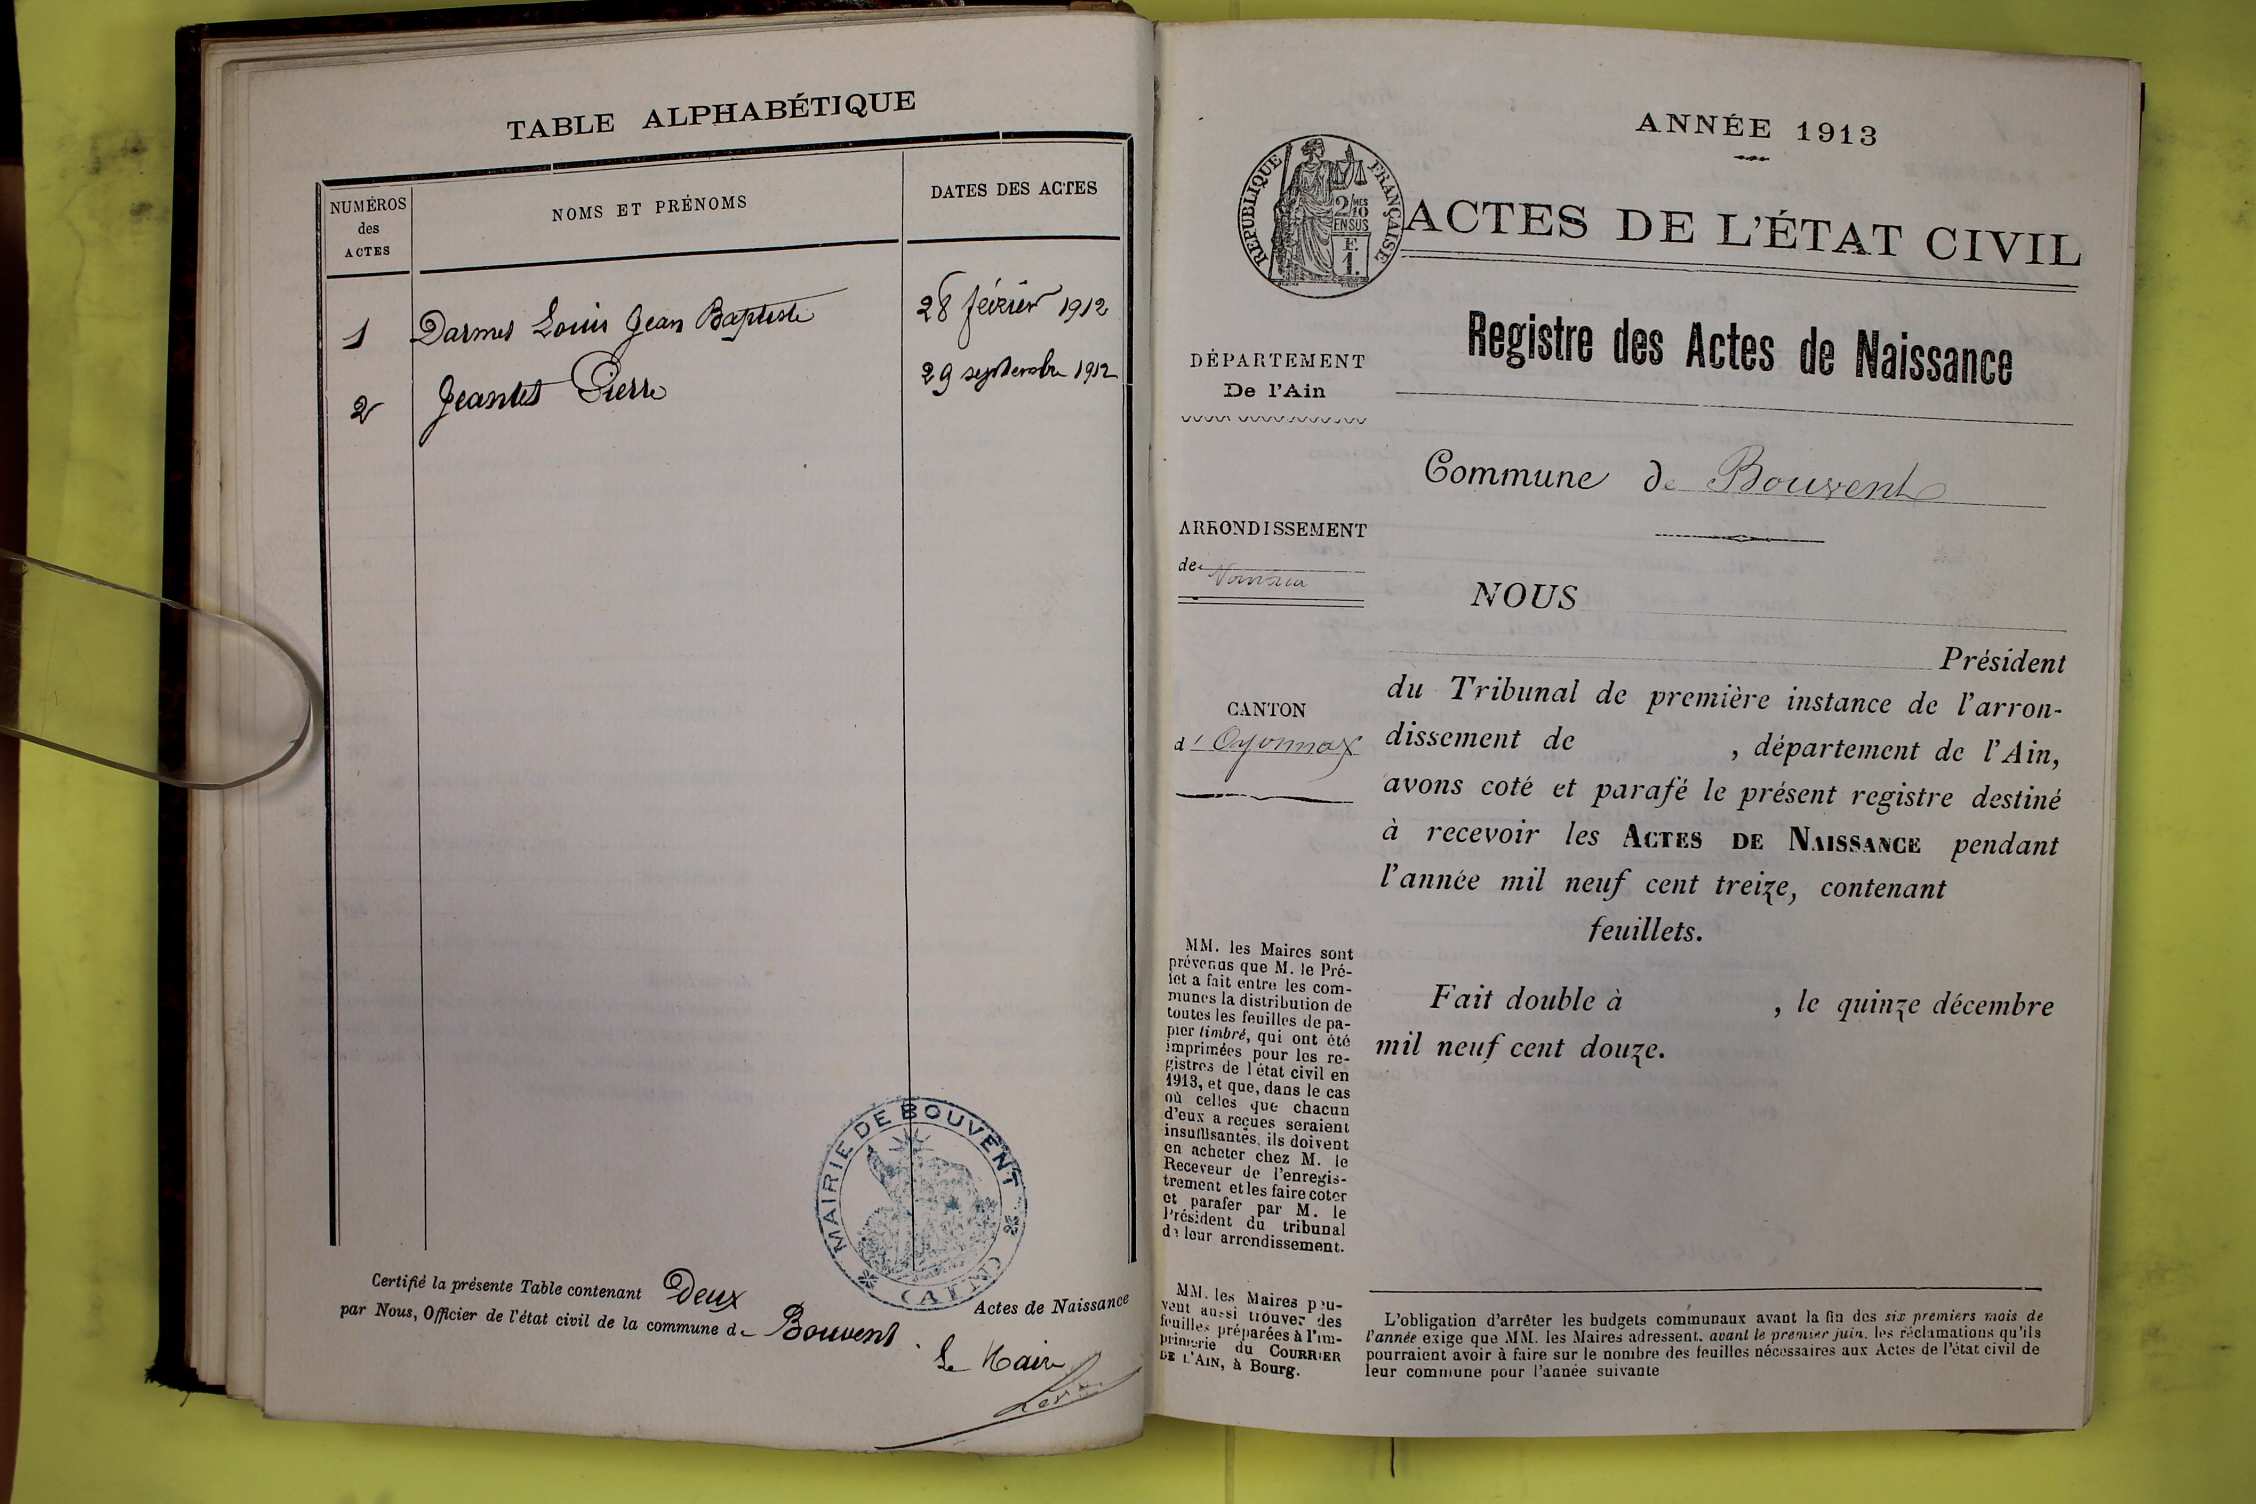 TABLE ALPHABÉTIQUE
NUMÉROS
des
ACTES
NOMS ET PRÉNOMS
DATES DES ACTES
1 Darmet Louis Jean Baptiste 28 février 1912
2 Jeantet Pierre 29 septembre 1912
MAIRIE DE BOUVENT
(AIN)
Certifié la présente Table contenant Deux Actes de Naissance
par Nous, Officier de l'état civil de la commune de Bouvent.
Le Maire
ANNÉE 1913
RÉPUBLIQUE FRANÇAISE
2/10
MES
EN SUS
F.
1.
ACTES DE L'ÉTAT CIVIL
Registre des Actes de Naissance
DÉPARTEMENT
De l'Ain
Commune de Bouvent
ARRONDISSEMENT
de Nantua
CANTON
d'Oyonnax
NOUS
Président
du Tribunal de première instance de l'arron-
dissement de , département de l'Ain,
avons coté et parafé le présent registre destiné
à recevoir les ACTES DE NAISSANCE pendant
l'année mil neuf cent treize, contenant
feuillets.
Fait double à , le quinze décembre
mil neuf cent douze.
MM. les Maires sont
prévenus que M. le Pré-
fet a fait entre les com-
munes la distribution de
toutes les feuilles de pa-
pier timbré, qui ont été
imprimées pour les re-
gistres de l'état civil en
1913, et que, dans le cas
où celles que chacun
d'eux a reçues seraient
insuffisantes, ils doivent
en acheter chez M. le
Receveur de l'enregis-
trement et les faire coter
et parafer par M. le
Président du tribunal
de leur arrondissement.
MM. les Maires peu-
vent aussi trouver des
feuilles préparées à l'im-
primerie du COURRIER
DE L'AIN, à Bourg.
L'obligation d'arrêter les budgets communaux avant la fin des six premiers mois de
l'année exige que MM. les Maires adressent, avant le premier juin, les réclamations qu'ils
pourraient avoir à faire sur le nombre des feuilles nécessaires aux Actes de l'état civil de
leur commune pour l'année suivante